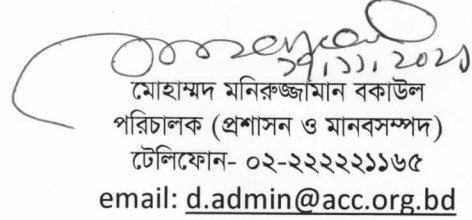 মোহাম্মদ মনিরুজ্জামান বকাউল
পরিচালক (প্রশাসন ও মানবসম্পদ)
টেলিফোন- ০২-২২২২২১১৬৫
email: d.admin@acc.org.bd